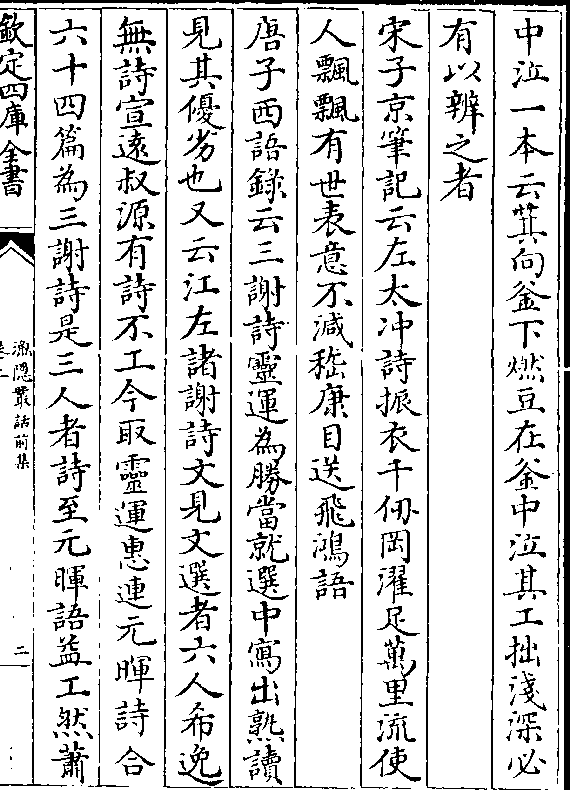 中泣一本云萁向釜下燃豆在釜中泣其工拙淺深必
有以辨之者
宋子京筆記云左太冲詩振衣千仞岡濯足萬里流使
人飄飄有世表意不減嵇康目送飛鴻語
唐子西語錄云三謝詩靈運為勝當就選中寫出熟讀
見其優劣也又云江左諸謝詩文見文選者六人希逸
無詩宣遠叔源有詩不工今取靈運惠連元暉詩合
六十四篇為三謝詩是三人者詩至元暉語益工然蕭
欽定四庫全書
漁隱叢話前集
卷二
二